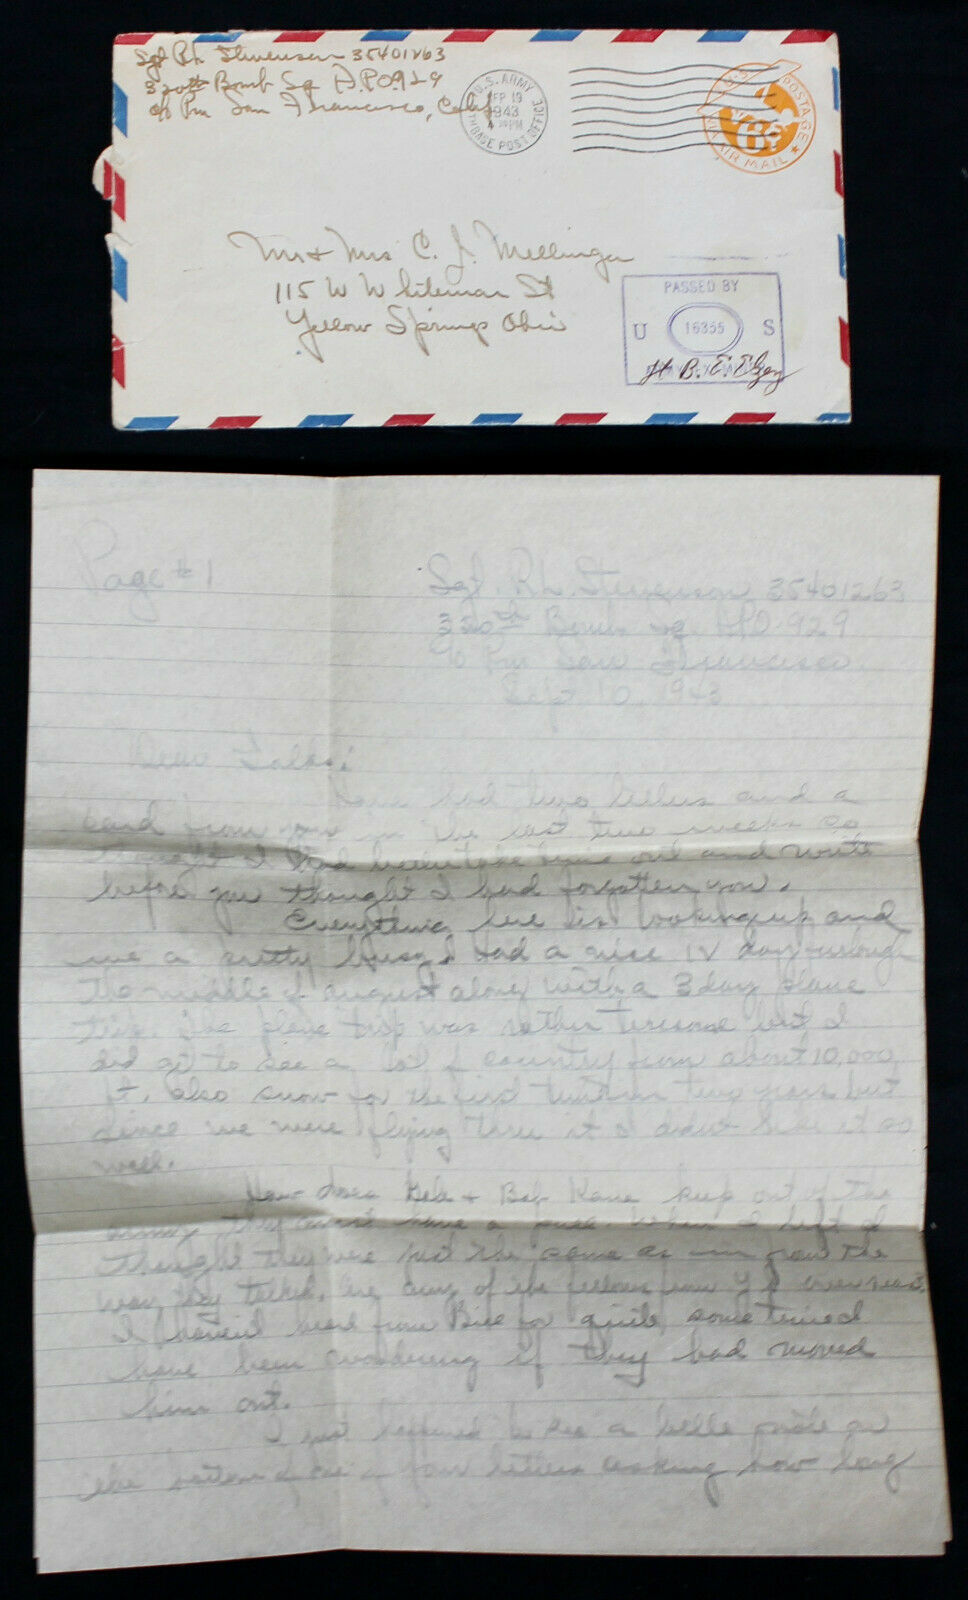 Sgt R.L. Stevenson 35401263
320th Bomb Sq A.P.O 929
c/o Pm San Francisco, Calif
U.S. ARMY
SEP 19
1943
BASE POST OFFICE
U.S. POSTAGE
6¢
VIA AIR MAIL
Mr & Mrs C. J. Mellinger
115 W Whiteman St
Yellow Springs Ohio
PASSED BY
U 16355 S
Page #1
Sgt. R.L. Stevenson 35401263
320th Bomb Sq. APO-929
c/o Pm San Francisco
Sept 10, 1943
Dear Folks:
Have had two letters and a
card from you in the last two weeks so
thought I had better take time out and write
before you thought I had forgotten you.
Everything here is looking up and
me a pretty busy. Had a nice 12 day furlough
the middle of august along with a 3 day plane
trip. The plane trip was rather tiresome but I
did get to see a lot of country from about 10,000
ft. also snow for the first time in two years but
since we were flying thru it I didnt like it so
well.
How does & Bob Kane keep out of the
army they must have a pull. When I left I
thought they were just the same as in from the
way they talked. Are any of the fellows from Y S overseas.
I havent heard from Bill for quite some time
have been wondering if they had moved
him out.
I just happened to see a little note on
the bottom of one of your letters asking how long